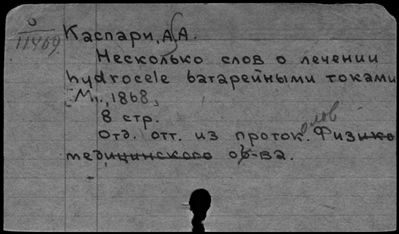 й
11469
Каспари, А.А.
Несколько слов о лечении
hydrocele батарейными токами
[М.], 1868,
8 стр.
Отд. отт. из проток. Физико
медицинского об-ва.